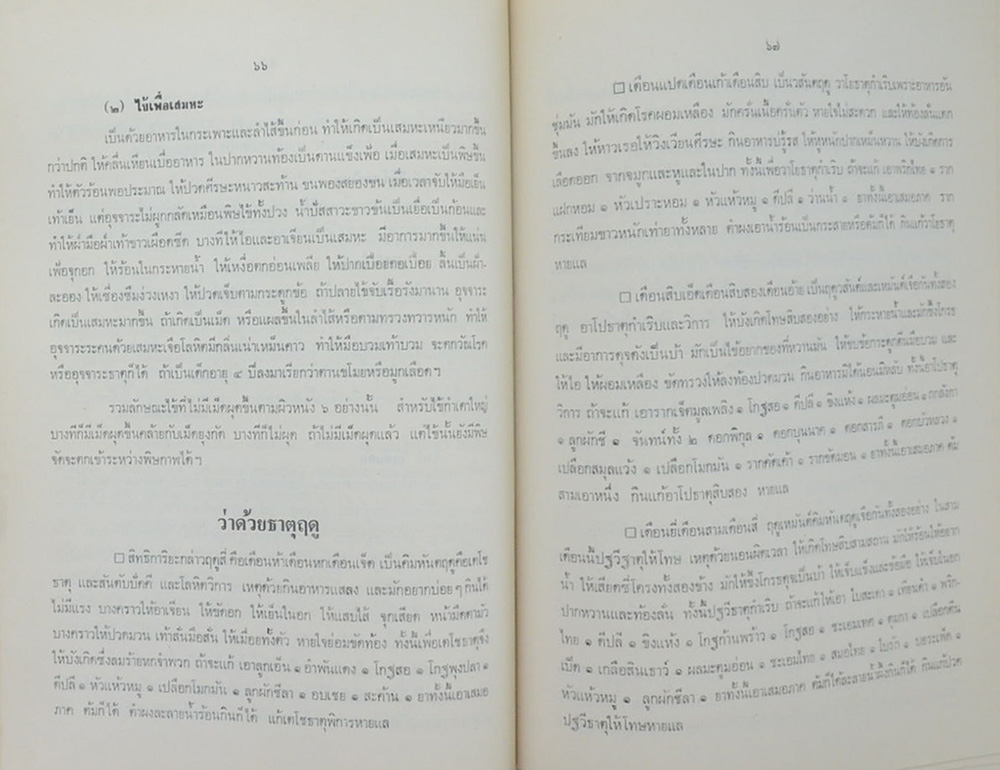 ๖๖
(๒) ไข้เพื่อเสมหะ
เป็นด้วยอาหารในกระเพาะและลำไส้ขึ้นก่อน ทำให้เกิดเป็นเสมหะเหนียวมากขึ้น
กว่าปกติ ให้คลื่นเหียนเบื่ออาหาร ในปากหวานท้องเป็นดานแข็งเพ้อ เมื่อเสมหะเป็นพิษขึ้น
ทำให้ตัวร้อนพอประมาณ ให้ปวดศีรษะหนาวสะท้าน ขนพองสยองขน เมื่อเวลาจับให้มือเย็น
เท้าเย็น แต่อุจจาระไม่ผูกกลัดเหมือนพิษไข้ทั้งปวง น้ำปัสสาวะขาวข้นเป็นเยื่อเป็นก้อนและ
ทำให้ฝ่ามือฝ่าเท้าขาวเผือดซีด บางทีให้ไอและอาเจียนเป็นเสมหะ มีอาการมากขึ้นให้แน่น
เพ้อจุกอก ให้ร้อนในกระหายน้ำ ให้เหงื่อตกอ่อนเพลีย ให้ปากเปื่อยคอเปื่อย ลิ้นเป็นฝ้า-
ละออง ให้เซื่องซึมง่วงเหงา ให้ปวดเจ็บตามกระดูกข้อ ถ้าปลายไข้จับเรื้อรังมานาน อุจจาระ
เกิดเป็นเสมหะมากขึ้น ถ้าเกิดเป็นเม็ด หรือแผลขึ้นในลำไส้หรือตามทรวงทวารหนัก ทำให้
อุจจาระระคนด้วยเสมหะเจือโลหิตมีกลิ่นเน่าเหม็นคาว ทำให้มือบวมเท้าบวม จะตกวัณโรค
หรืออุจจาระธาตุก็ได้ ถ้าเป็นเด็กอายุ ๕ ปีลงมาเรียกว่าตานขโมยหรือมูกเลือดฯ
รวมลักษณะไข้ที่ไม่มีเม็ดผุดขึ้นตามผิวหนัง ๖ อย่างนั้น สำหรับไข้กำเดาใหญ่
บางทีก็มีเม็ดผุดขึ้นคล้ายกับเม็ดยุงกัด บางทีก็ไม่ผุด ถ้าไม่มีเม็ดผุดแล้ว แต่ไข้นั้นยังมีพิษ
จัดจะตกเข้าระหว่างพิษกาฬได้ฯ
ว่าด้วยธาตุฤดู
□ สิทธิการิยะกล่าวฤดูสี่ คือเดือนห้าเดือนหกเดือนเจ็ด เป็นคิมหันตฤดูคือเตโช
ธาตุ และสันตัปปัคคี และโลหิตวิการ เหตุด้วยกินอาหารแสลง และมักอยากบ่อยๆ กินได้
ไม่มีแรง บางคราวให้อาเจียน ให้ขัดอก ให้เย็นในอก ให้แสบไส้ จุกเสียด หน้ามืดตามัว
บางคราวให้ปวดมวน เท้าสั่นมือสั่น ให้เมื่อยทั้งตัว หายใจย่อมขัดท้อง ทั้งนี้เพื่อเตโชธาตุจึง
ให้บังเกิดซึ่งลมร้ายหกจำพวก ถ้าจะแก้ เอาลูกเอ็น ๑ อำพันแดง ๑ โกฐสอ ๑ โกฐพุงปลา ๑
ดีปลี ๑ หัวแห้วหมู ๑ เปลือกโมกมัน ๑ ลูกผักชีลา ๑ อบเชย ๑ สะค้าน ๑ ยาทั้งนี้เอาเสมอ
ภาค ต้มก็ได้ ตำผงละลายน้ำร้อนกินก็ได้ แก้เตโชธาตุพิการหายแล
๖๗
□ เดือนแปดเดือนเก้าเดือนสิบ เป็นวสันตฤดู วาโยธาตุกำเริบเพราะอาหารอัน
ชุ่มมัน มักให้เกิดโรคผอมเหลือง มักครั่นเนื้อครั่นตัว หายใจไม่สะดวก และให้ท้องลั่นแดก
ขึ้นลง ให้หาวเรอให้วิงเวียนศีรษะ กินอาหารบ่รู้รส ให้หูหนักปากเหม็นหวาน ให้บังเกิดการ
เลือดออก จากจมูกและหูและในปาก ทั้งนี้เพื่อวาโยธาตุกำเริบ ถ้าจะแก้ เอาพริกไทย ๑ ราก
แฝกหอม ๑ หัวเปราะหอม ๑ หัวแห้วหมู ๑ ดีปลี ๑ ว่านน้ำ ๑ ยาทั้งนี้เอาเสมอภาค ราก
กระเทียมขาวหนักเท่ายาทั้งหลาย ตำผงเอาน้ำร้อนเป็นกระสายหรือต้มก็ได้ กินแก้วาโยธาตุ
หายแล
□ เดือนสิบเอ็ดเดือนสิบสองเดือนอ้าย เป็นฤดูวสันต์และเหมันต์เจือกันทั้งสอง
ฤดู อาโปธาตุกำเริบและวิการ ให้บังเกิดโทษสิบสองอย่าง ให้กระหายน้ำและมักขึ้งโกรธ
และมีอาการดุจดังเป็นบ้า มักเป็นไข้อยากของที่หวานมัน ให้ขบข้อกระดูกตีนมือบวม และ
ให้ไอ ให้ผอมเหลือง ขัดทรวงให้ลงท้องปวดมวน กินอาหารมิได้นอนมิหลับ ทั้งนี้อาโปธาตุ
วิการ ถ้าจะแก้ เอารากเจ็ดมูลเพลิง ๑ โกฐสอ ๑ ดีปลี ๑ ขิงแห้ง ๑ ผลมะตูมอ่อน ๑ กกลังกา
๑ ลูกผักชี ๑ จันทน์ทั้ง ๒ ดอกพิกุล ๑ ดอกบุนนาค ๑ ดอกสารภี ๑ ดอกบัวหลวง ๑
เปลือกสมุลแว้ง ๑ เปลือกโมกมัน ๑ รากคัดเค้า ๑ รากขัดมอน ๑ ยาทั้งนี้เอาเสมอภาค ต้ม
สามเอาหนึ่ง กินแก้อาโปธาตุสิบสอง หายแล
□ เดือนยี่เดือนสามเดือนสี่ ฤดูเหมันต์คิมหันตฤดูเจือกันทั้งสองอย่าง ในสาม
เดือนนี้ปฐวีธาตุให้โทษ เหตุด้วยนอนผิดเวลา ให้เกิดโทษสิบสามสถาน มักให้ร้อนให้อยาก
น้ำ ให้เสียดซี่โครงทั้งสองข้าง มักให้ขึ้งโกรธดุจเป็นบ้า ให้เจ็บแข้งและข้อมือ ให้เจ็บในอก
ปากหวานและท้องลั่น ทั้งนี้ปฐวีธาตุกำเริบ ถ้าจะแก้ให้เอา ใบสะเดา ๑ เทียนดำ ๑ พริก-
ไทย ๑ ดีปลี ๑ ขิงแห้ง ๑ โกฐก้านพร้าว ๑ โกฐสอ ๑ ชะเอมเทศ ๑ ๑ เปลือกตีน
เป็ด ๑ เกลือสินเธาว์ ๑ ผลมะตูมอ่อน ๑ ชะเอมไทย ๑ สมอไทย ๑ ใบรัก ๑ บอระเพ็ด ๑
หัวแห้วหมู ๑ ลูกผักชีลา ๑ ยาทั้งนี้เอาเสมอภาค ต้มก็ได้ละลายน้ำผึ้งกินก็ได้ กินแก้ปวด
ปฐวีธาตุให้โทษหายแล